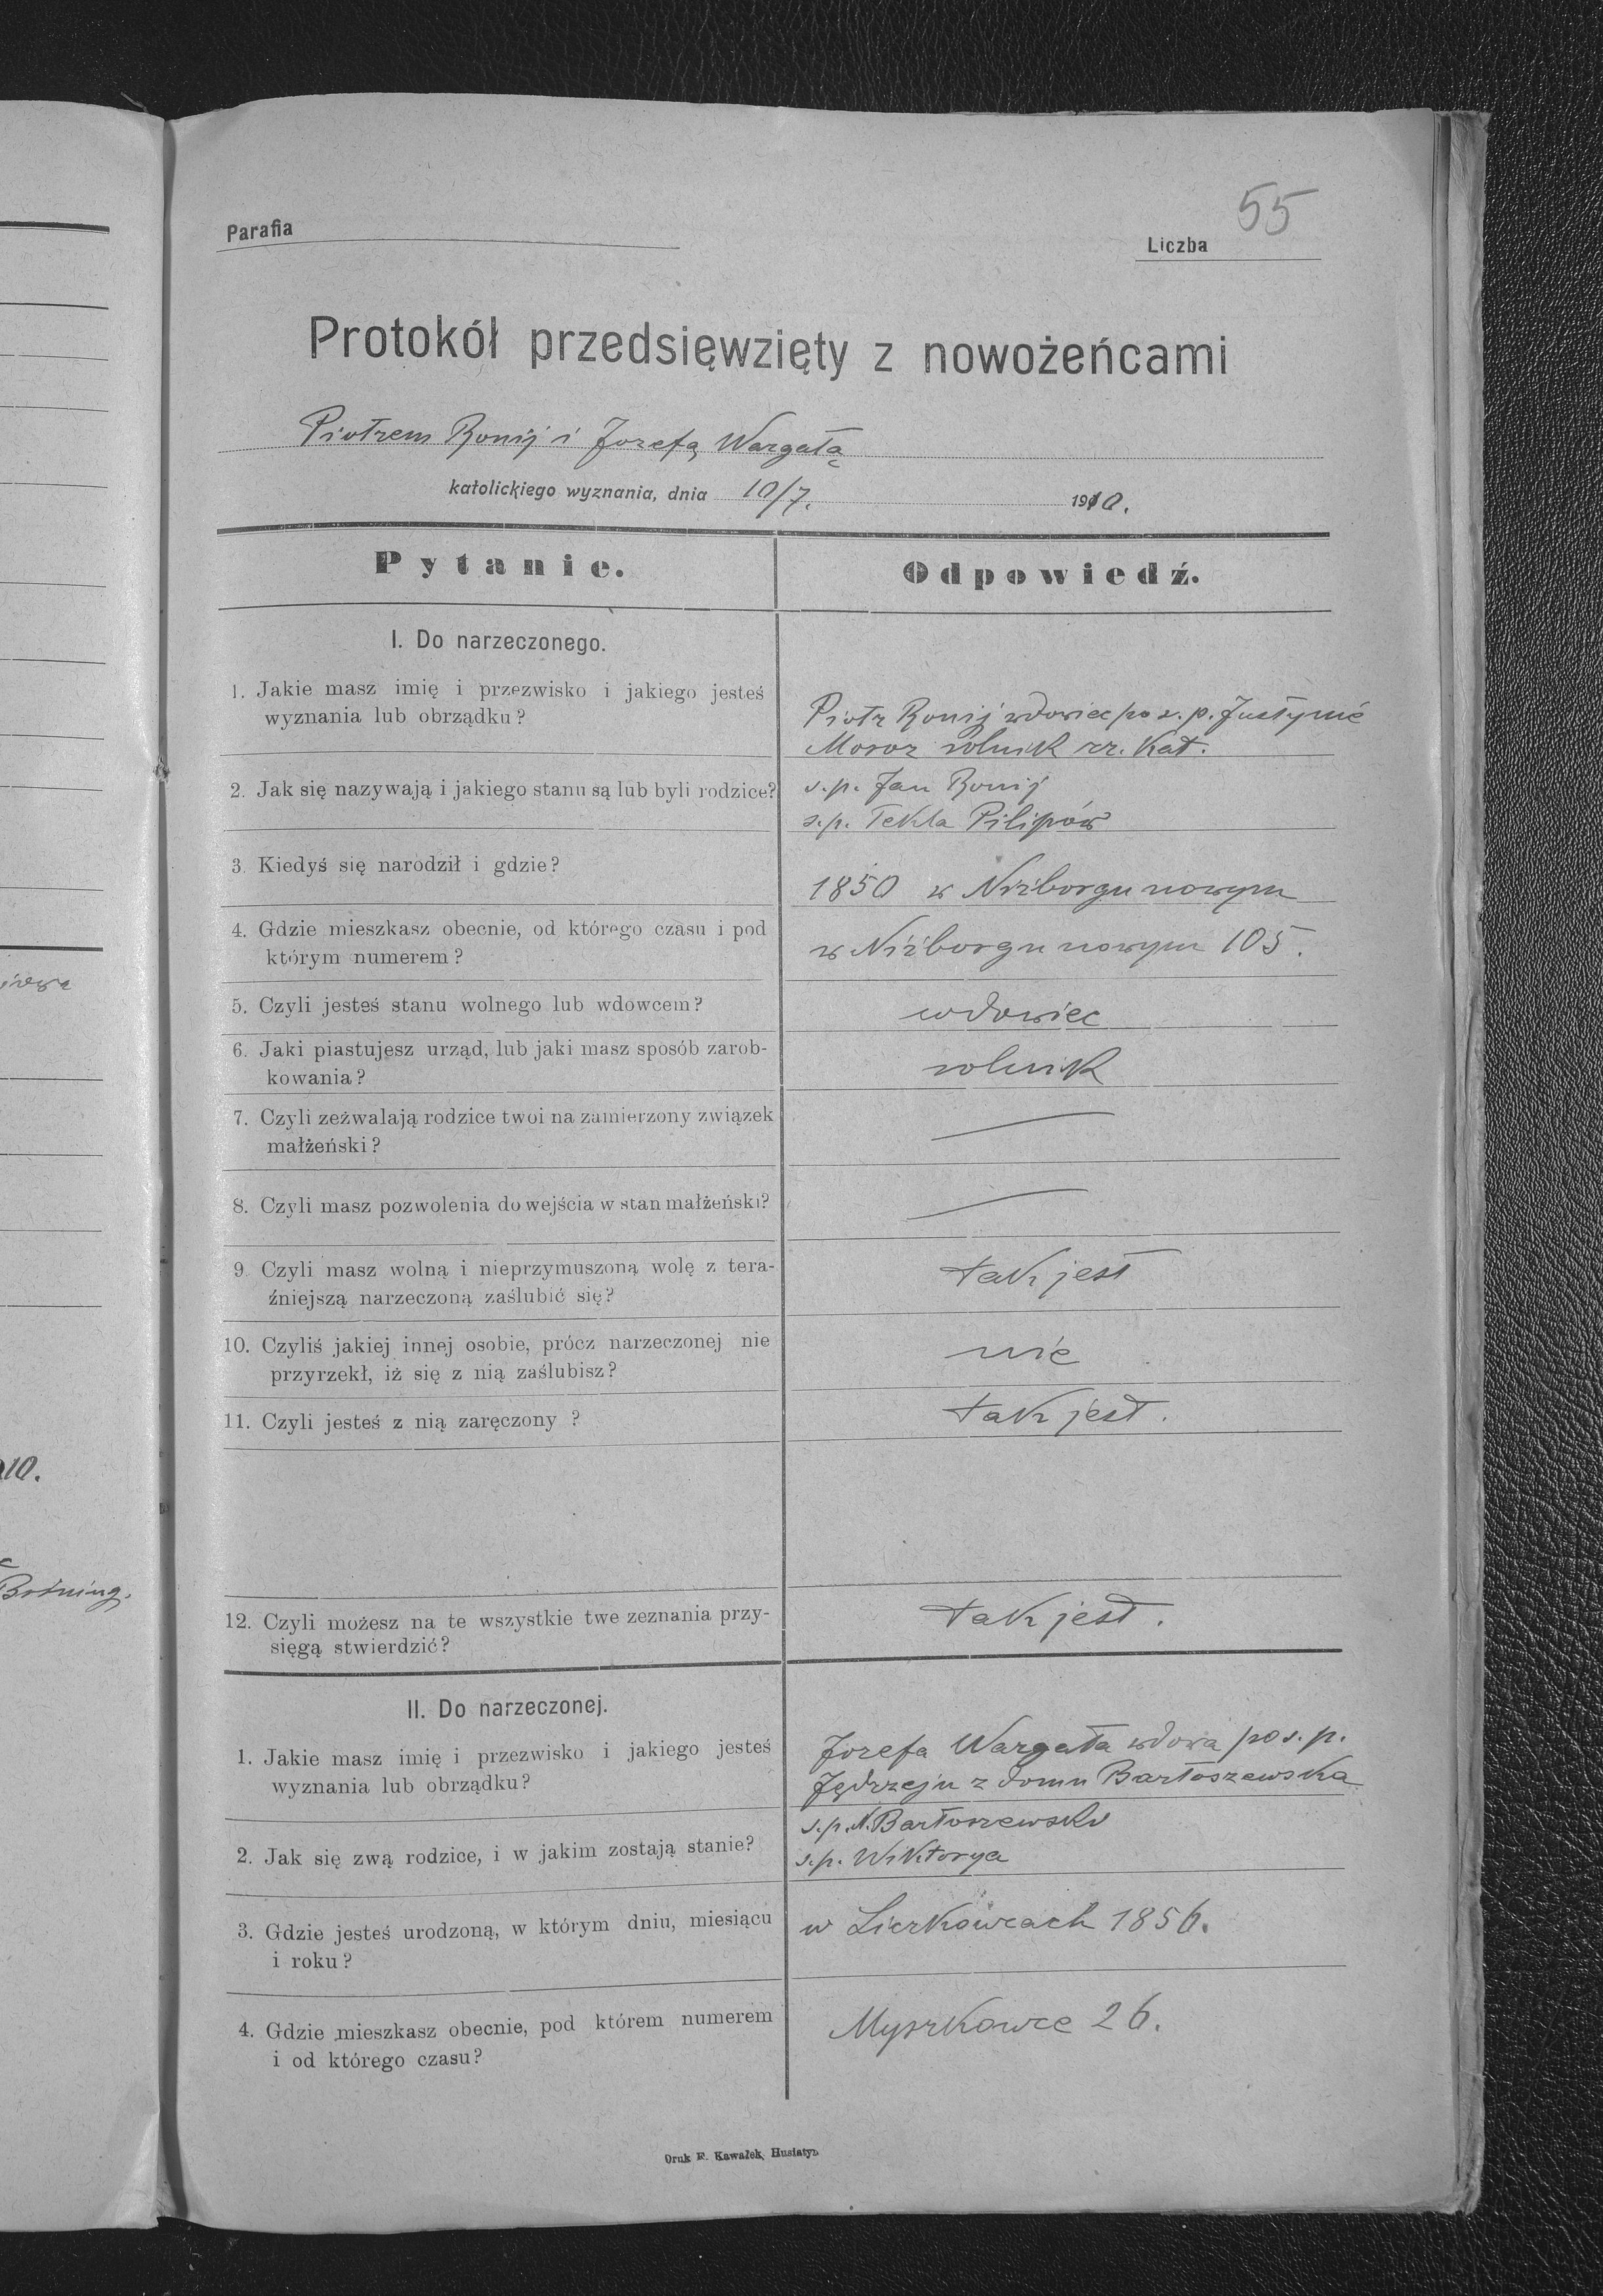 Parafia
Liczba
55
Protokół przedsięwzięty z nowożeńcami
Piotrem Ronij i Jozefą Wargałą
katolickiego wyznania, dnia 10/7. 1910.
Pytanie.
Odpowiedź.
I. Do narzeczonego.
1. Jakie masz imię i przezwisko i jakiego jesteś
wyznania lub obrządku?
Piotr Ronij wdowiec po s. p. Justynie
Moroz rolnik rz. Kat.
2. Jak się nazywają i jakiego stanu są lub byli rodzice?
s.p. Jan Ronij
s.p. Tekla Pilipów
3. Kiedyś się narodził i gdzie?
1850 w Niżborgu nowym
4. Gdzie mieszkasz obecnie, od którego czasu i pod
którym numerem?
w Niżborgu nowym 105.
5. Czyli jesteś stanu wolnego lub wdowcem?
wdowiec
6. Jaki piastujesz urząd, lub jaki masz sposób zarob-
kowania?
rolnik
7. Czyli zeżwalają rodzice twoi na zamierzony związek
małżeński?
8. Czyli masz pozwolenia do wejścia w stan małżeński?
9. Czyli masz wolną i nieprzymuszoną wolę z tera-
źniejszą narzeczoną zaślubić się?
tak jest
10. Czyliś jakiej innej osobie, prócz narzeczonej nie
przyrzekł, iż się z nią zaślubisz?
nie
11. Czyli jesteś z nią zaręczony ?
tak jest.
12. Czyli możesz na te wszystkie twe zeznania przy-
sięgą stwierdzić?
tak jest.
II. Do narzeczonej.
1. Jakie masz imię i przezwisko i jakiego jesteś
wyznania lub obrządku?
Jozefa Wargała wdowa po s. p.
Jędrzeju z domu Bartoszewska
2. Jak się zwą rodzice, i w jakim zostają stanie?
s.p. N. Bartoszewski
s.p. Wiktorya
3. Gdzie jesteś urodzoną, w którym dniu, miesiącu
i roku?
w Liczkowcach 1856.
4. Gdzie mieszkasz obecnie, pod którem numerem
i od którego czasu?
Myszkowce 26.
Druk F. Kawałek, Husiatyn
10.